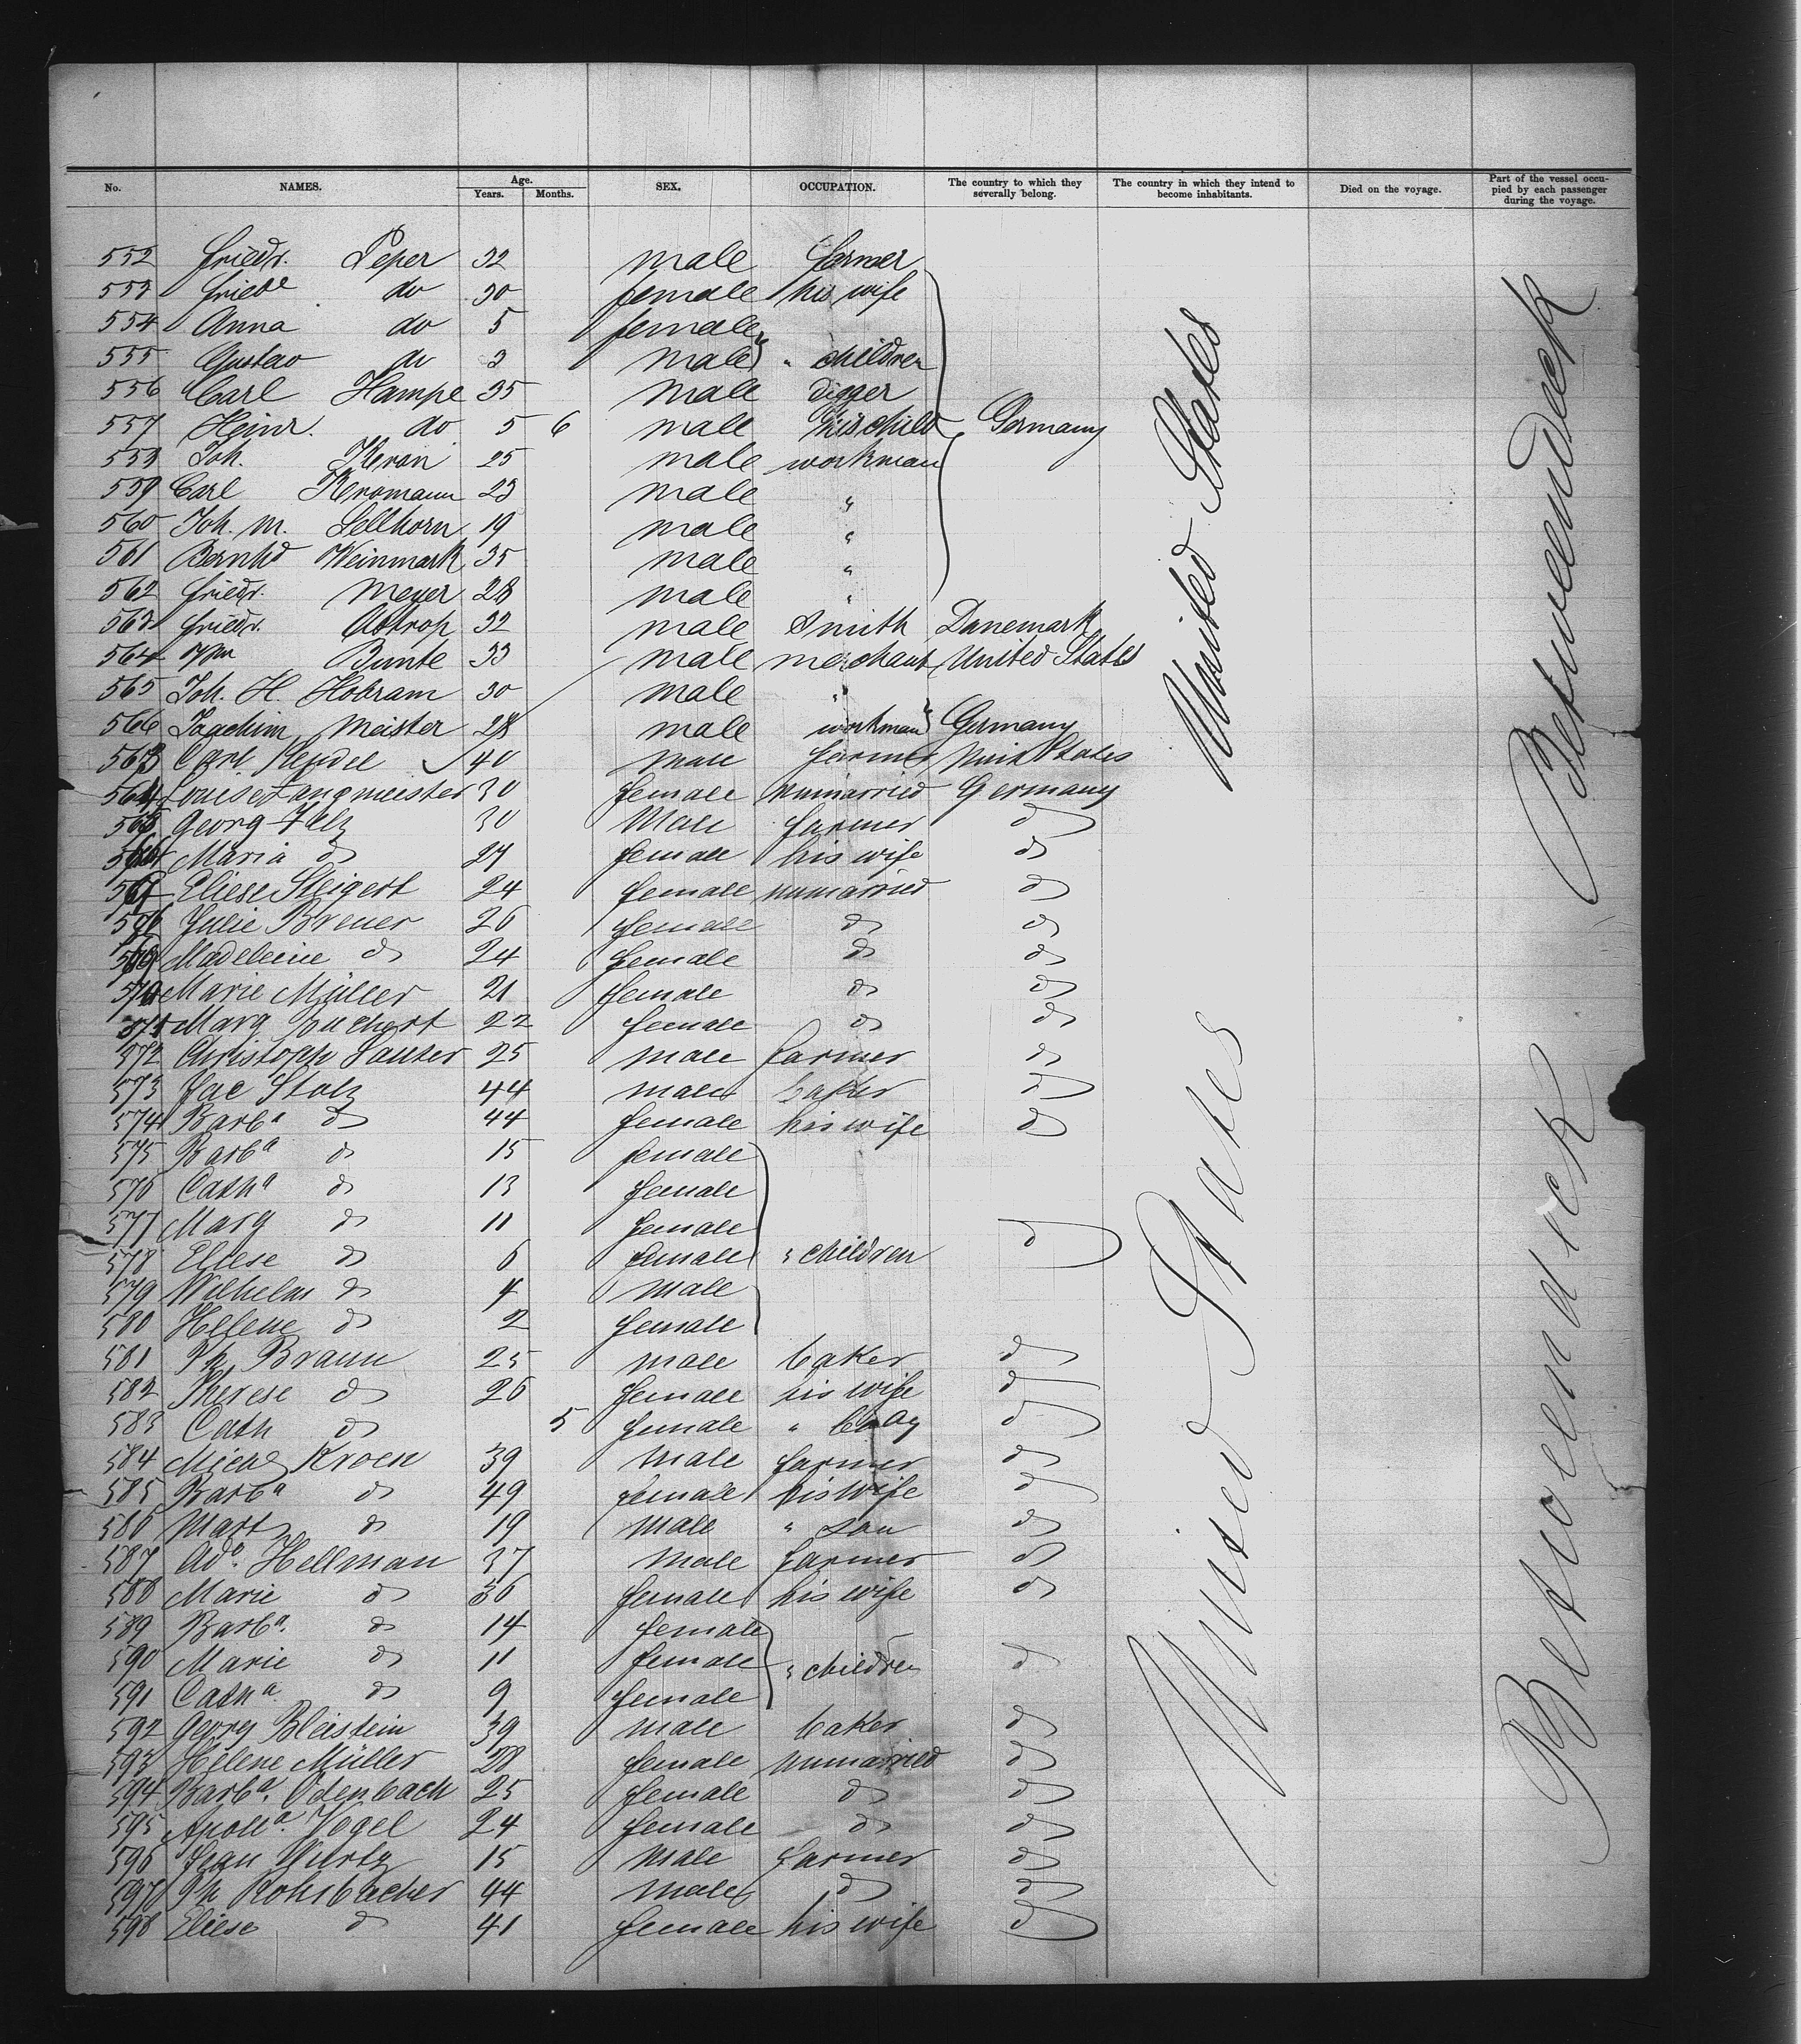 No. NAMES. Age. Years. Months. SEX. OCCUPATION. The country to which they severally belong. The country in which they intend to become inhabitants. Died on the voyage. Part of the vessel occupied by each passenger during the voyage.
552 Friedr. Peper 32 male farmer
553 Friede do 30 female his wife
554 Anna do 5 female
555 Gustav do 3 male " children
556 Carl Hampe 35 male digger
557 Heinr. do 5 6 male his child Germany
558 Joh. 25 male workman
559 Carl 23 male "
560 Joh. M. Sellhorn 19 male "
561 Bernhd Weinmark 35 male "
562 Friedr. Meyer 28 male "
563 Friedr. 32 male Smith Danemark
564 Bunte 33 male merchant United States
565 Joh. H. Hobram 30 male "
566 Joachim Meister 28 male workman Germany
563 Carl 40 male farmer Unit States
564 Louise Langmeister 30 female unmarried Germany
565 Georg 30 Male farmer do
Maria do 27 female his wife do
567 Eliese Steigert 24 female unmarried do
Julie Breuer 26 female do do
569 Madeleine do 24 female do do
570 Marie Müller 21 female do do
571 Marg 22 female do do
572 Christoph Sauter 25 male farmer do
573 Jac Stolz 44 male baker do
574 Barba do 44 female his wife do
575 Barba do 15 female
576 Catha do 13 female
577 Marg do 11 female do
578 Eliese do 6 female " children
579 Wilhelm do 4 male
580 Helene do 2 female
581 Ph Braun 25 male baker do
582 Therese do 26 female his wife do
583 Cath do 5 female " do
584 Michl Kroen 39 male farmer do
585 Barba do 49 female his wife do
586 Mart do 19 male " son do
587 Ada Hellman 37 male farmer do
588 Marie do 36 female his wife do
589 Barba. do 14 female
590 Marie do 11 female " children do
591 Catha. do 9 female
592 Georg Bleistein 39 male baker do
593 Helene Müller 28 female unmarried do
594 Barba. Odenbach 25 female do do
595 Apolla. Vogel 24 female do do
596 Jean Wurtz 15 male farmer do
597 Ph Rohrbacher 44 male do do
598 Eliese do 41 female his wife do
United States
United States
Betweendeck
Betweendeck